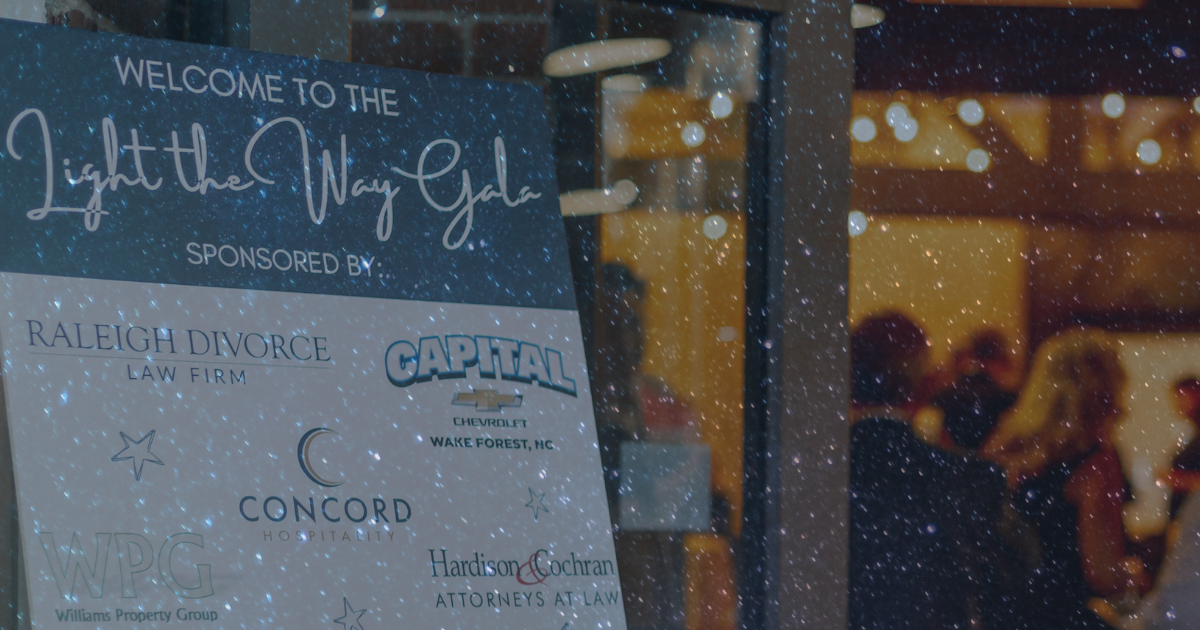 WELCOME TO THE
Light the Way Gala
SPONSORED BY:
RALEIGH DIVORCE
LAW FIRM
CAPITAL
CHEVROLET
WAKE FOREST, NC
CONCORD
HOSPITALITY
WPG
Williams Property Group
Hardison & Cochran
ATTORNEYS AT LAW